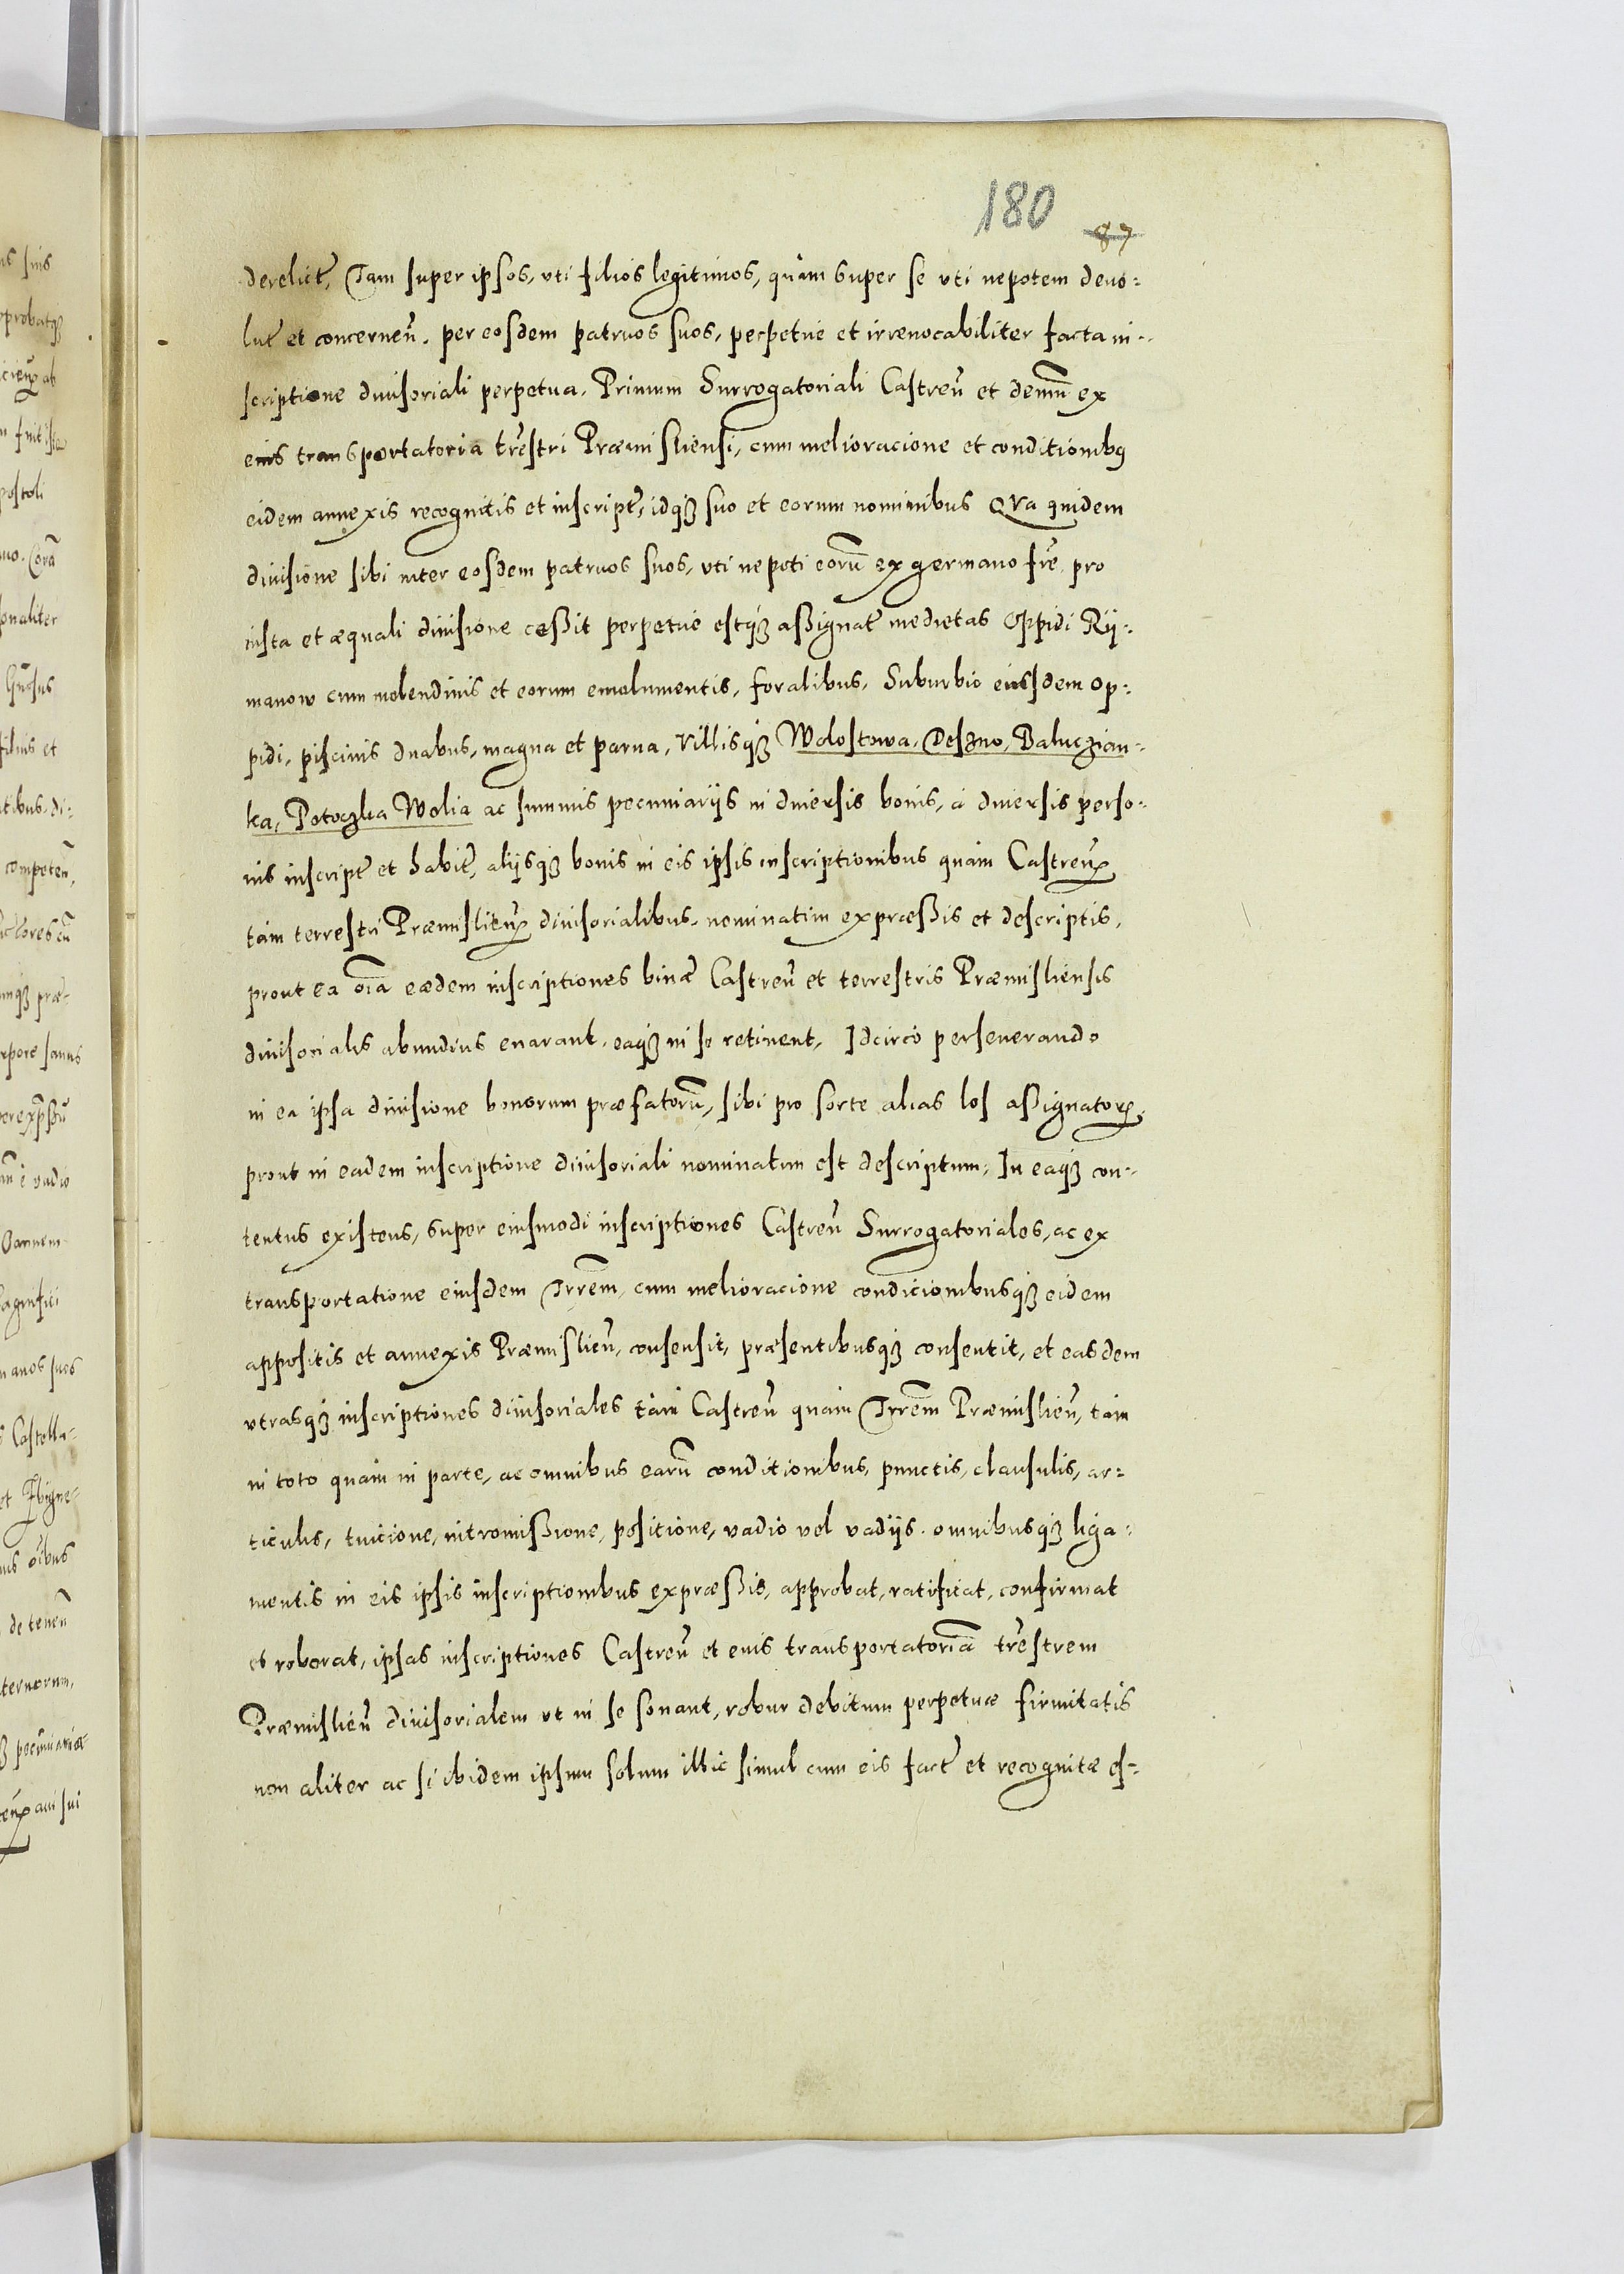 180
87
derelict, Tam super ipsos, vti filios legitimos, quàm super se vti nepotem deuo:
lut et concernen̄. per eosdem patruos suos, perpetue et irreuocabiliter facta in:
scriptione diuisoriali perpetua, Primum Surrogatoriali Castren̄ et demum̄ ex
eius transportatoria tr̄estri Præmisliensi, cum melioracione et conditionibꝯ
eidem annexis recognitis et inscript, idqȝ suo et eorum nominibus QVa quidem
diuisione sibi inter eosdem patruos suos, vti nepoti eorū ex germano fr̄e pro
iusta et æquali diuisione ceßit perpetue estqȝ aßignat medietas Oppidi Rÿ:
manow cum molendinis et eorum emolumentis, foralibus, Suburbio eiusdem op:
pidi, piscinis duabus, magna et parua, Villisqȝ Wolostowa, Deszno, Baluczian:
ka, Potoczka Wolia ac summis pecuniarijs in diuersis bonis, à diuersis perso:
nis inscript et habit, alijsqȝ bonis in eis ipsis inscriptionibus quàm Castren̄
tàm terrestri Præmislien̄ diuisorialibus, nominatim expræßis et descriptis,
prout ea oīa eædem inscriptiones binæ Castren̄ et terrestris Præmisliensis
diuisorialis abundius enarant, eaqȝ in se retinent, Idcircò perseuerando
in ea ipsa diuisione bonorum præfatorū, sibi pro sorte alias los aßignatorꝝ,
prout in eadem inscriptione diuisoriali nominatim est descriptum, In eaqȝ con:
tentus existens, super eiusmodi inscriptiones Castren̄ Surrogatoriales, ac ex
transportatione eiusdem Trrēm, cum melioracione condicionibusqȝ eidem
appositis et annexis Præmislien̄, consensit, præsentibusqȝ consentit, et easdem
vtrasqȝ inscriptiones diuisoriales tàm Castren̄ quàm Trrēm Præmislien̄, tàm
in toto quàm in parte, ac omnibus earū conditionibus, punctis, clausulis, ar:
ticulis, tuicione, intromißione, positione, vadio vel vadijs, omnibusqȝ liga:
mentis in eis ipsis inscriptionibus expræßis, approbat, ratificat, confirmat
et roborat, ipsas inscriptiones Castren̄ et eius transportatoriā tr̄estrem
Præmislien̄ diuisorialem vt in se sonant, robur debitum perpetuæ firmitatis
non aliter ac si ibidem ipsum solum illic simul cum eis fact et recognitæ es: